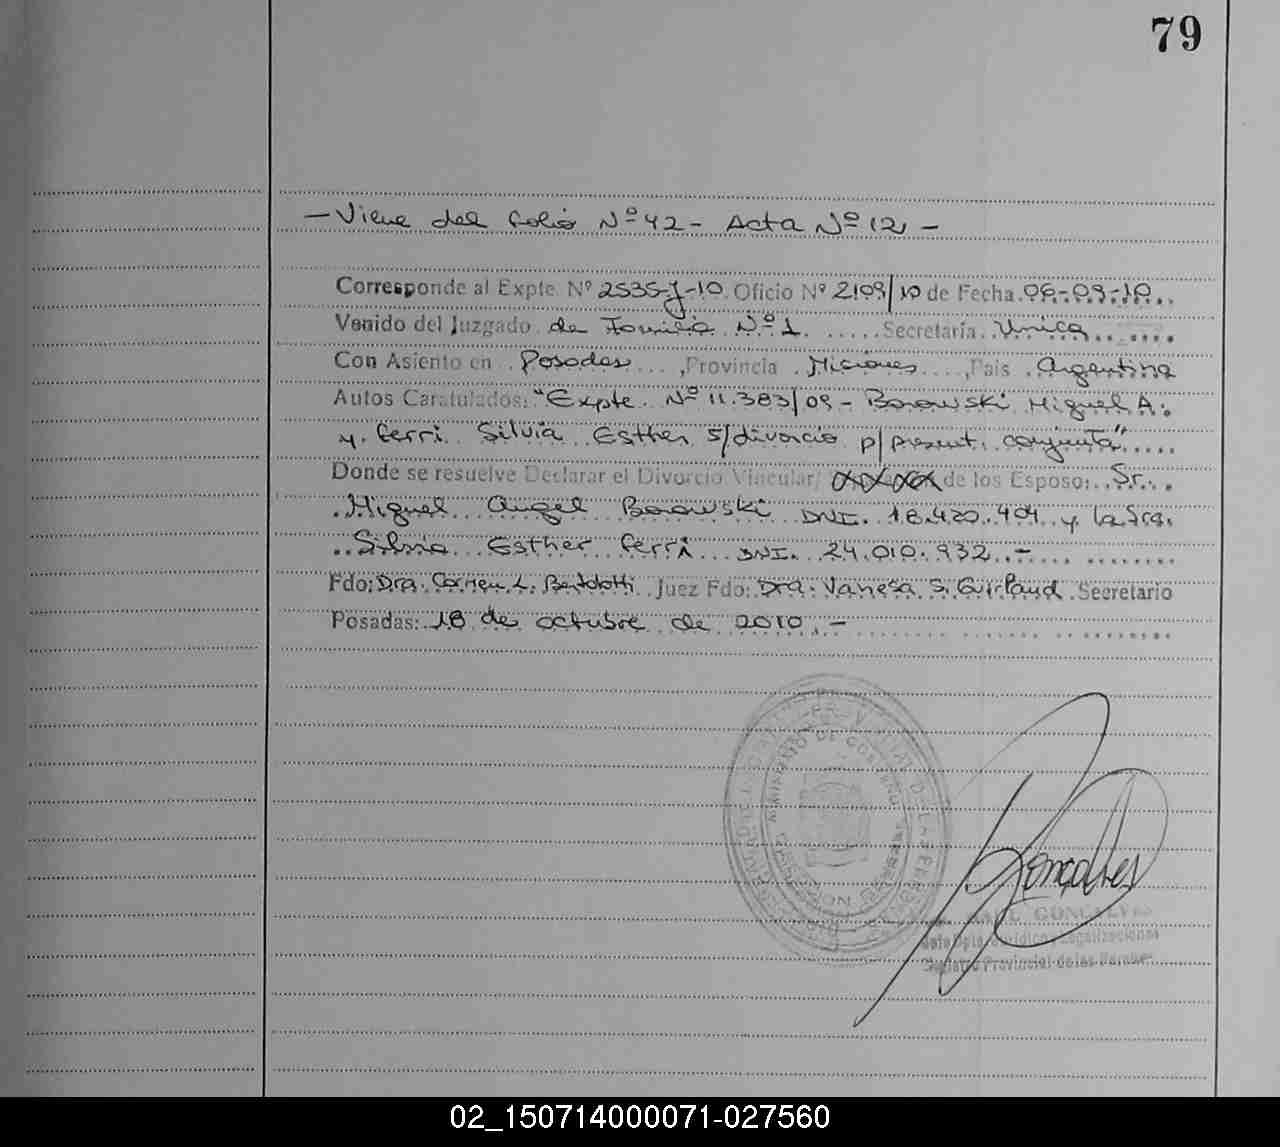 79
— Viene del folio Nº 42 - Acta Nº 12 —
Corresponde al Expte. Nº 2535-J-10. Oficio Nº 2109/10 de Fecha 06-09-10
Venido del Juzgado de Familia Nº 1. Secretaría Unica
Con Asiento en Posadas, Provincia Misiones, País Argentina
Autos Caratulados: "Expte. Nº 11.383/09 - Borowski Miguel A.
y Ferri Silvia Esther s/divorcio p/present. conjunta"
Donde se resuelve Declarar el Divorcio Vincular/ de los Esposo: Sr.
Miguel Angel Borowski DNI. 18.420.494 y la Sra.
Silvia Esther Ferri DNI. 24.010.932.-
Fdo: Dra. Carmen L. Juez Fdo: Dra. Vanesa S. Secretario
Posadas: 18 de octubre de 2010.-
MINISTERIO DE GOBIERNO
GONCALVES
Registro Provincial de las Personas
02_150714000071-027560